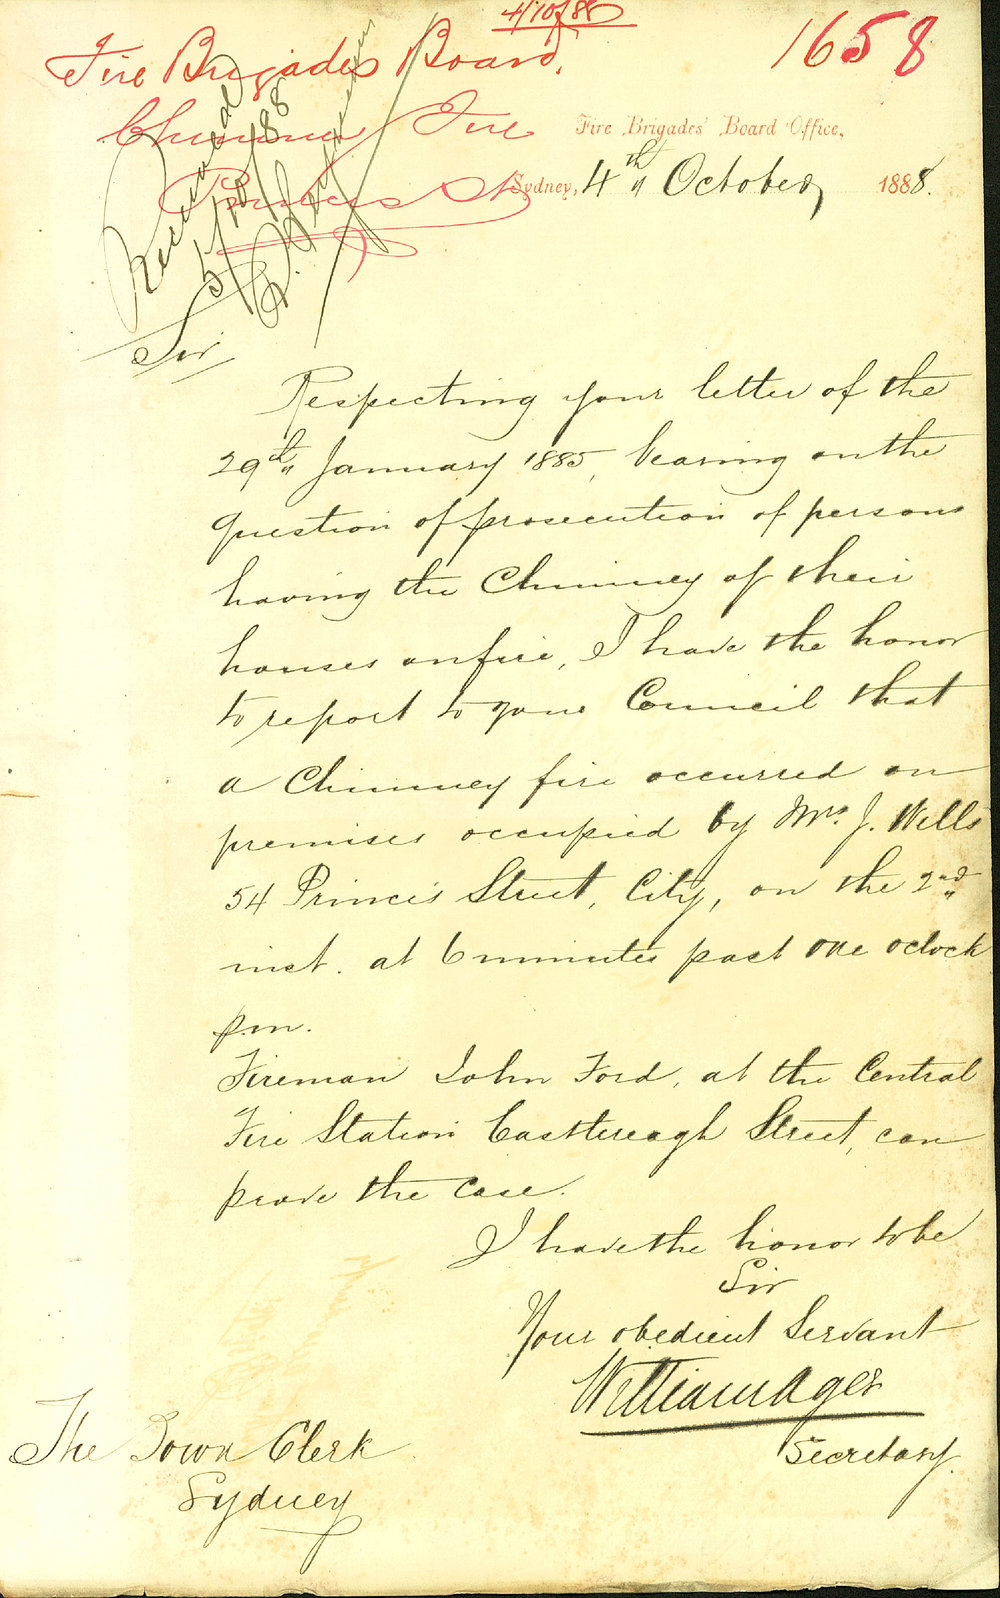 4/10/88
1658
Fire Brigades Board,
Chimney Fire
Princes St
Fire Brigades' Board Office,
Sydney, 4th October, 1888.
Received
5/10/88
Sir
Respecting your letter of the
29th January 1885, bearing on the
question of prosecution of persons
having the Chimney of their
houses on fire, I have the honor
to report to your Council that
a Chimney fire occurred on
premises occupied by Mrs. J. Wells
54 Princes Street, City, on the 2nd
inst. at 6 minutes past one oclock
p.m.
Fireman John Ford, at the Central
Fire Station Castlereagh Street, can
prove the case.
I have the honor to be
Sir
Your obedient Servant
William Ager
Secretary.
The Town Clerk
Sydney